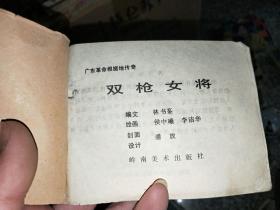 广东革命根据地传奇
双枪女将
编文 林书荃
绘画 侯中曦 李洁华
封面
设计 潘放
岭南美术出版社